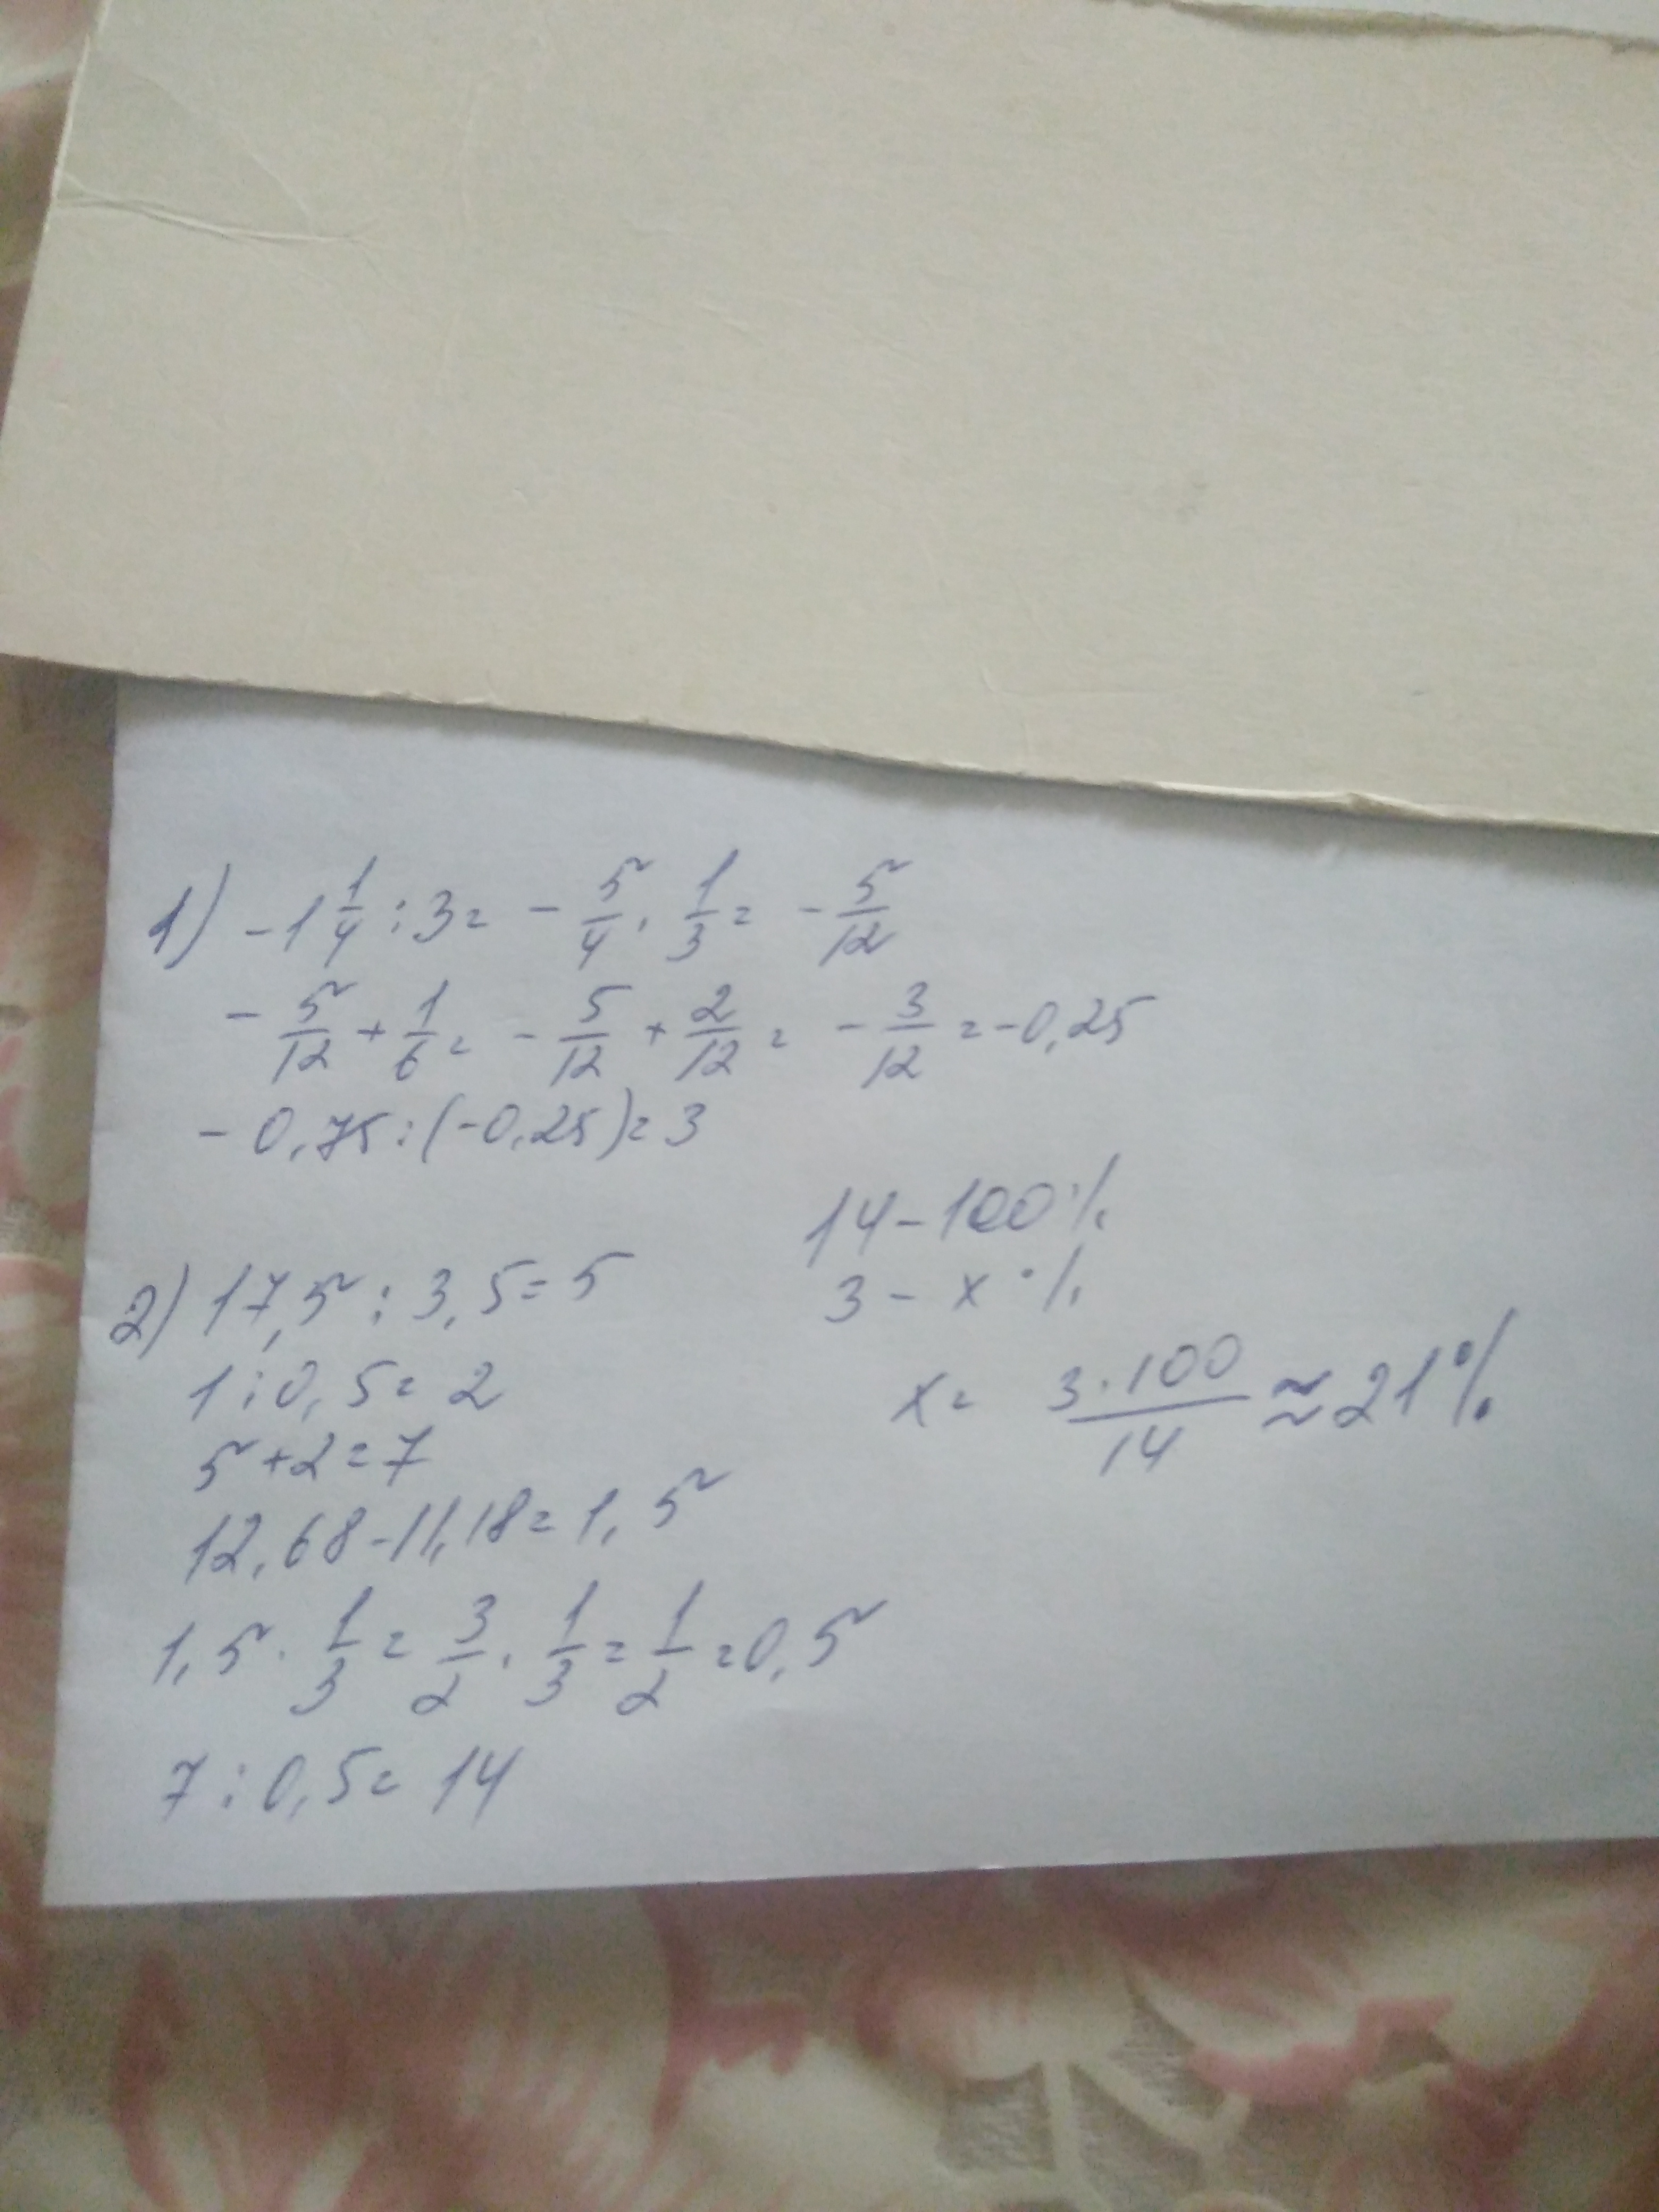 1) -1 1/4 : 3 = - 5/4 · 1/3 = - 5/12
- 5/12 + 1/6 = - 5/12 + 2/12 = - 3/12 = -0,25
- 0,75 : (-0,25) = 3
2) 17,5 : 3,5 = 5
1 : 0,5 = 2
5 + 2 = 7
12,68 - 11,18 = 1,5
1,5 · 1/3 = 3/2 · 1/3 = 1/2 = 0,5
7 : 0,5 = 14
14 - 100%
3 - x %
x = 3·100/14 ≈ 21%